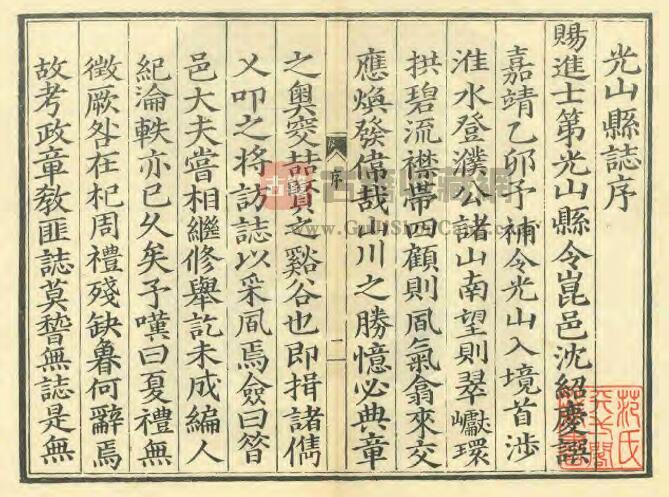 光山縣誌序
賜進士第光山縣令崑邑沈紹慶譔
嘉靖乙卯予補令光山入境首涉
淮水登濮公諸山南望則翠巘環
拱碧流襟帶四顧則風氣翕來交
應煥發偉哉川之勝憶必典章
序
二
之奧窔喆賢之谿谷也即揖諸儁
乂叩之將訪誌以采風焉僉曰昝
邑大夫嘗相繼修舉訖未成編人
紀淪軼亦已久矣予嘆曰夏禮無
徵厥咎在杞周禮殘缺魯何辭焉
故考政章敎匪誌莫稽無誌是無
范氏
天一閣
古籍
www.